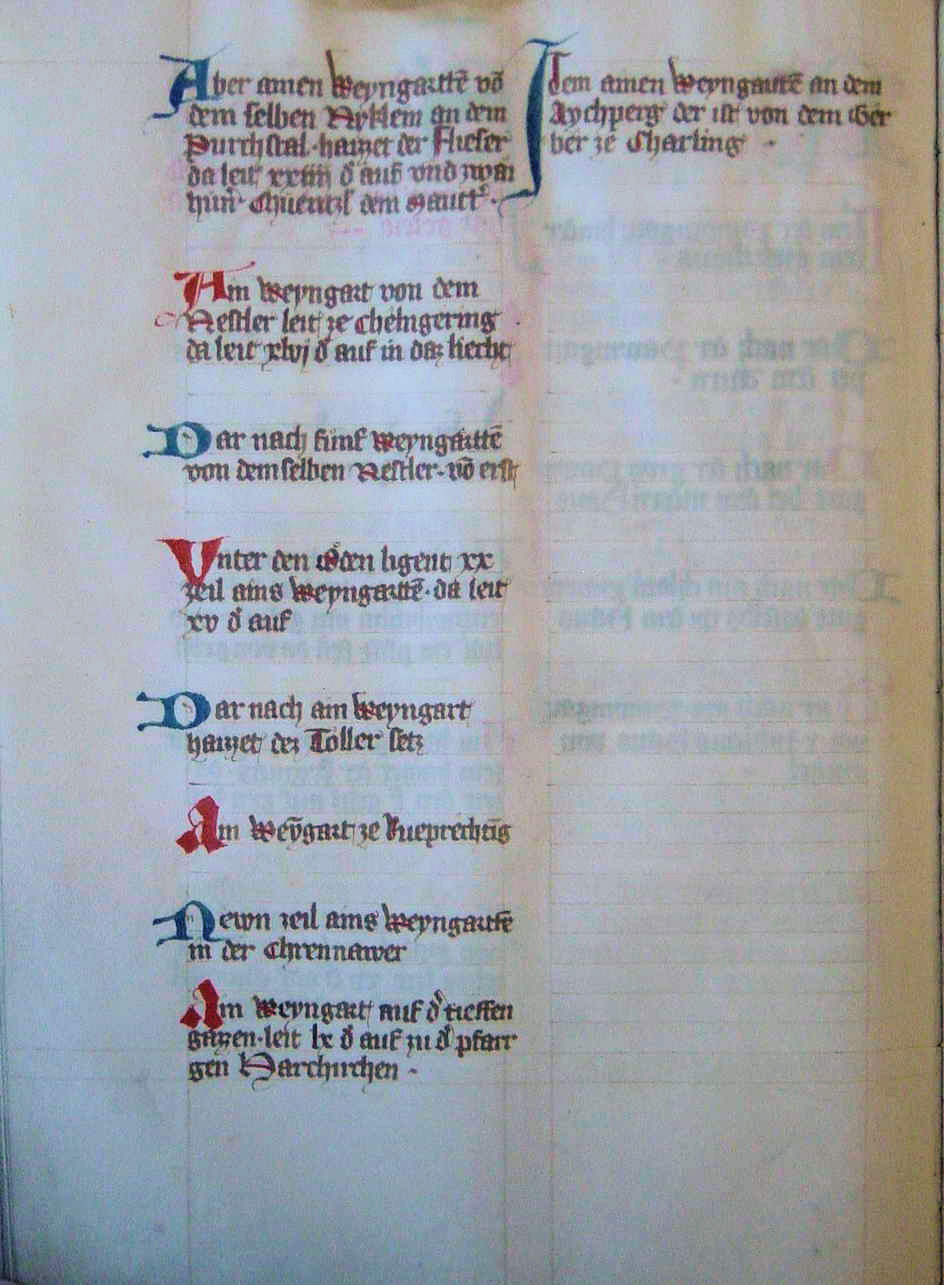 Aber ainen Weyngarttē võ
dem selben Nyklem an dem
Purchstal · haizzet der Flieser
da leit xxiiii đ auf vnd zwai
hun̄
Ain Weyngart von dem
Nestler leit ze
da leit xlvj đ auf in daz liecht
Dar nach fünf Weyngårttē
von demselben Nestler · võ erst
Vnter den Öden ligent xx
zeil ains Weyngarttē · da leit
xv đ auf
Dar nach ain Weyngart
haizzet dez Toller setz
Ain Weȳgart ze Rueprechtīg
Newn zeil ains Weyngarttē
in der Chrennawer
Ain Weyngart auf đ tieffen
gazzen · leit lx đ auf zu đ pfarr
gen Harchirchen ·
Item ainen Weyngartē an dem
Aychperg der ist von dem Ger
ber ze Charling ·